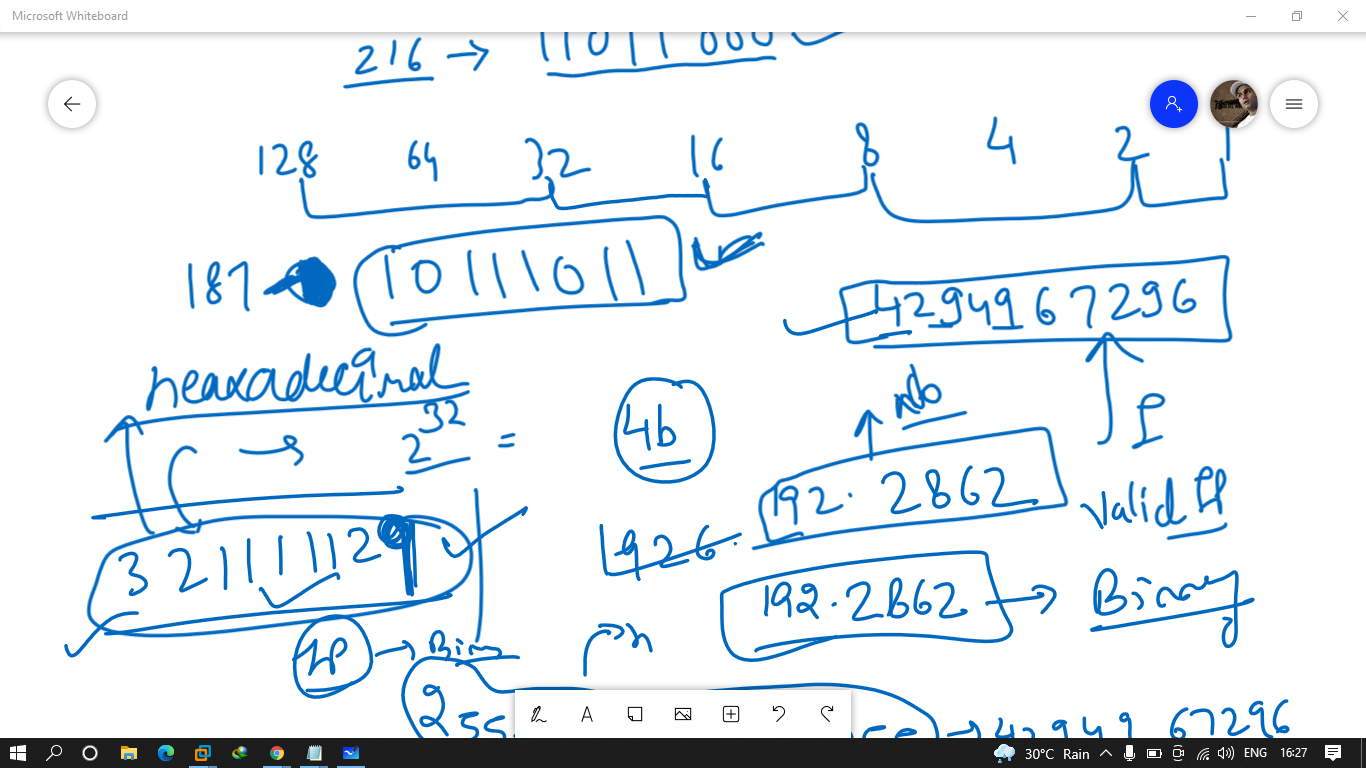 Microsoft Whiteboard
216 → 11011000
128 64 32 16 8 4 2 1
187 10111011
4294967296
heaxadecimal
2^32 = 4b
No
I
192. 2862
Valid IP
926.
192.2862 → Binary
IP → Binary
n
255
→ 42949 67296
30°C Rain
ENG
16:27